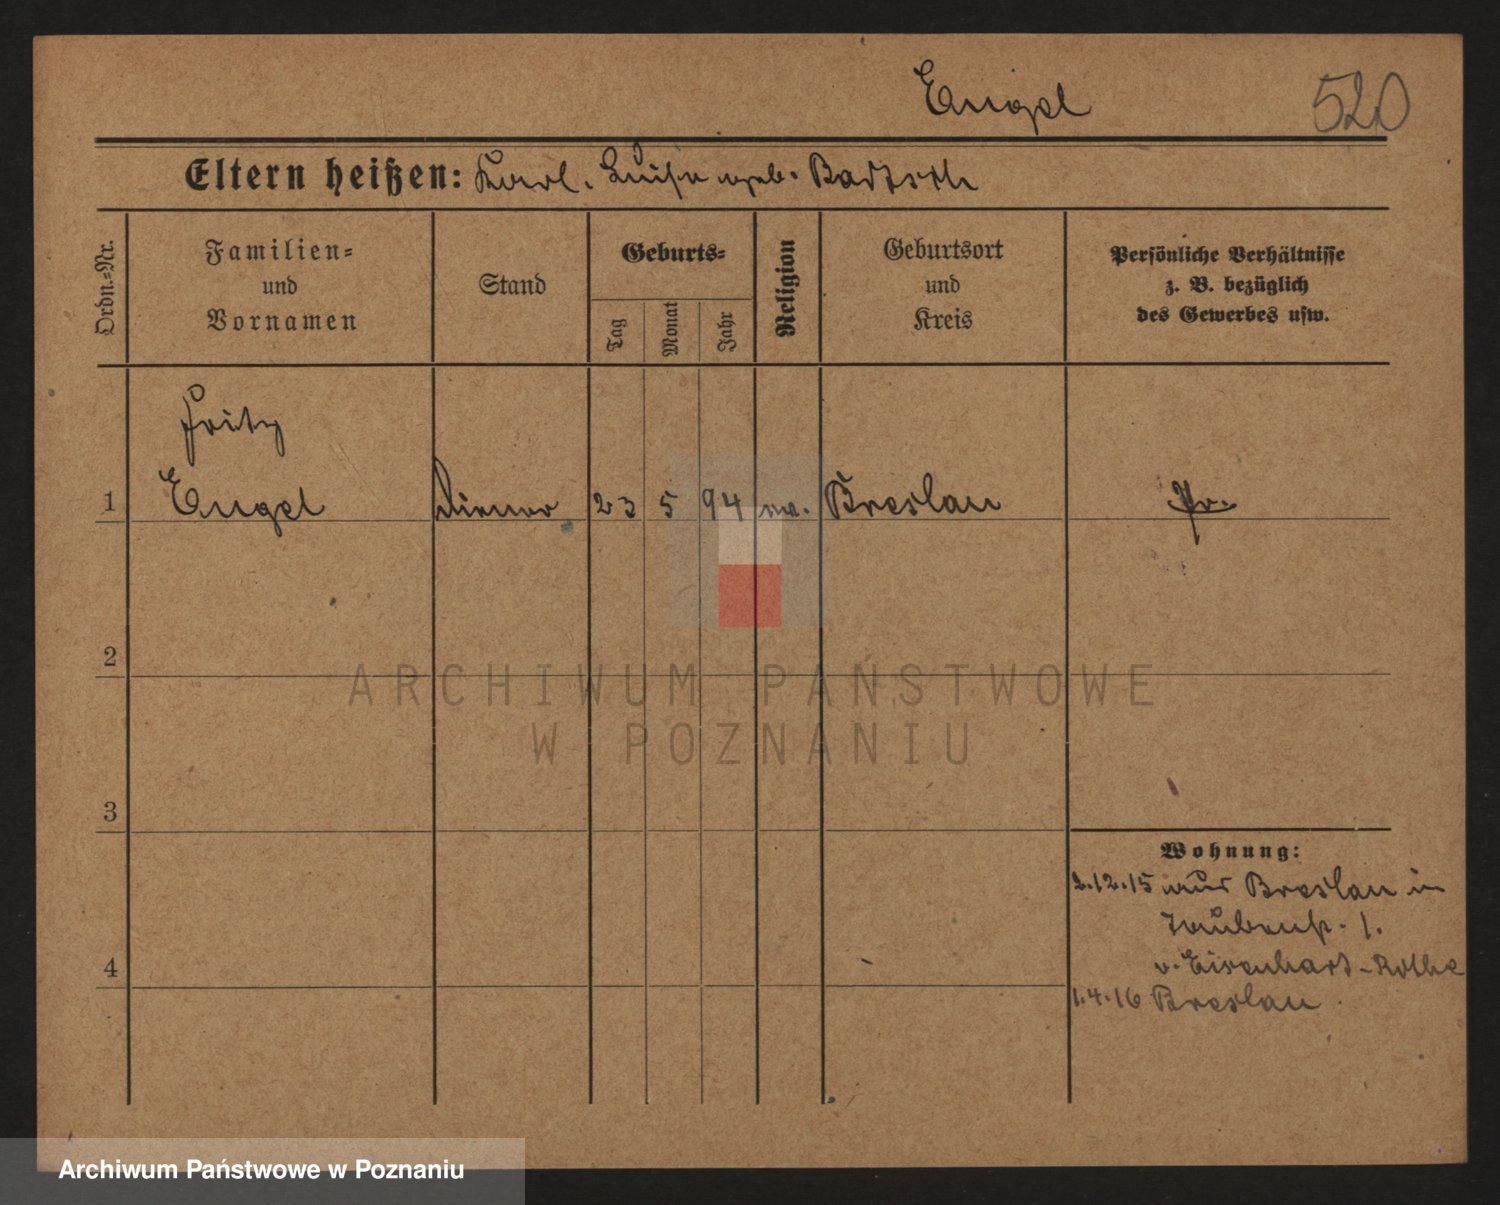 Engel
520
Eltern heißen: Karl. Luise geb. Badtsch
Ordn.-Nr.
Familien-
und
Vornamen
Stand
Geburts-
Tag
Monat
Jahr
Religion
Geburtsort
und
Kreis
Persönliche Verhältnisse
z. B. bezüglich
des Gewerbes usw.
Fritz
1 Engel Diener 23 5 94 ev. Breslau Pr.
2
ARCHIWUM PAŃSTWOWE
W POZNANIU
3
Wohnung:
2.12.15 aus Breslau in
Taubenstr. 1.
v. Eisenhart-Rothe
4
1.4.16 Breslau
Archiwum Państwowe w Poznaniu